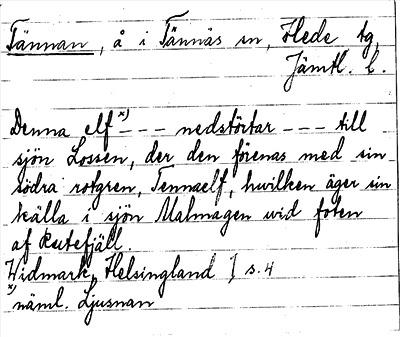 Tännan, å i Tännäs sn, Hede tg
Jämtl. l.
Denna elf x) --- nedstörtar --- till
sjön Lossen, der den förenas med sin
södra rotgren, Tennaelf, hvilken äger sin
källa i sjön Malmagen vid foten
af Rutefjäll.
Widmark, Helsingland I s. 4
x) näml. Ljusnan